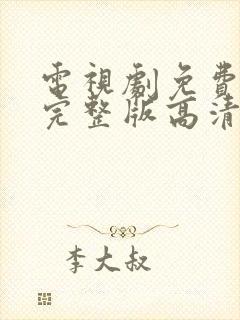 電視劇免費
完整版高清
李大叔